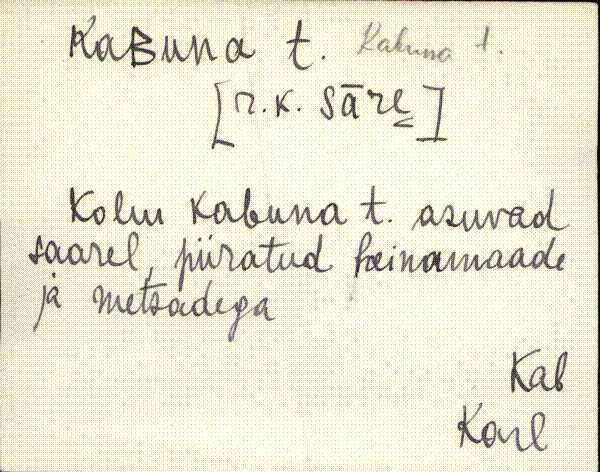 Kabuna t. Kabuna t.
[r.k. sāre]
Kolm Kabuna t. asuvad
saarel, piiratud heinamaade
ja metsadega
Kab
Karl